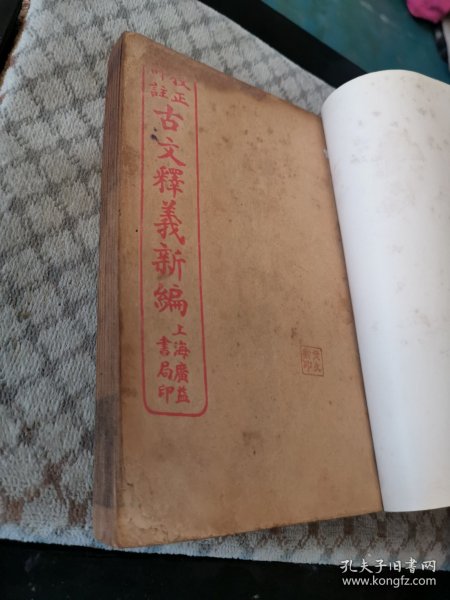 校正
註
古文釋義新編
上海廣益
書局印
孔夫子旧书网
www.kongfz.com